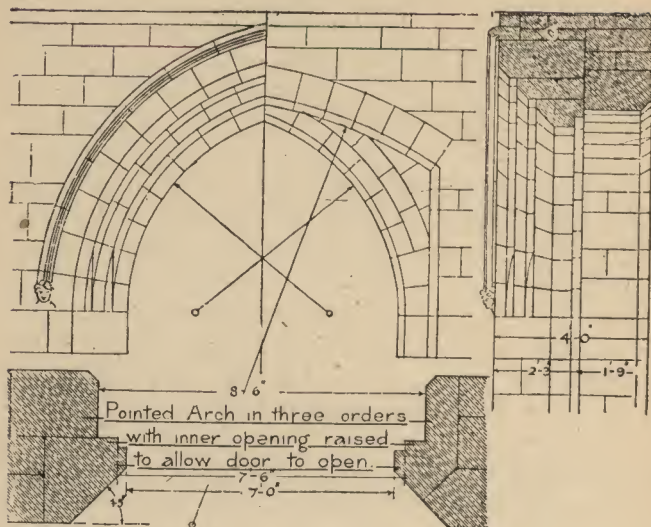 4'-0"
2'-3" 1'-9"
8'-6"
Pointed Arch in three orders
with inner opening raised
to allow door to open.
7'-6"
7'-0"